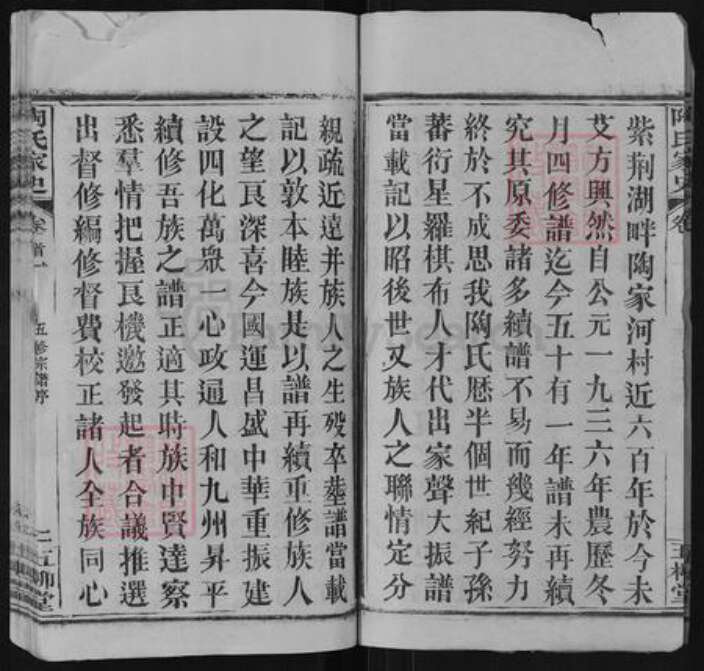 紫荆湖畔陶家河村近六百年於今未
艾方興然自公元一九三六年農歷冬
月四修譜迄今五十有一年譜未再續
究其原委諸多續譜不易而幾經努力
終於不成思我陶氏歷半個世紀子孫
蕃衍星羅棋布人才代出家聲大振譜
當載記以昭後世又族人之聯情定分
親疏近遠并族人之生歿卒塟譜當載
記以敦本睦族是以譜再續重修族人
之望良深喜今國運昌盛中華重振建
設四化萬衆一心政通人和九州昇平
續修吾族之譜正適其時族中賢達察
悉羣情把握良機邀發起者合議推選
出督修編修督費校正諸人全族同心
陶氏家史
卷首一
五修宗譜序
二
五柳堂